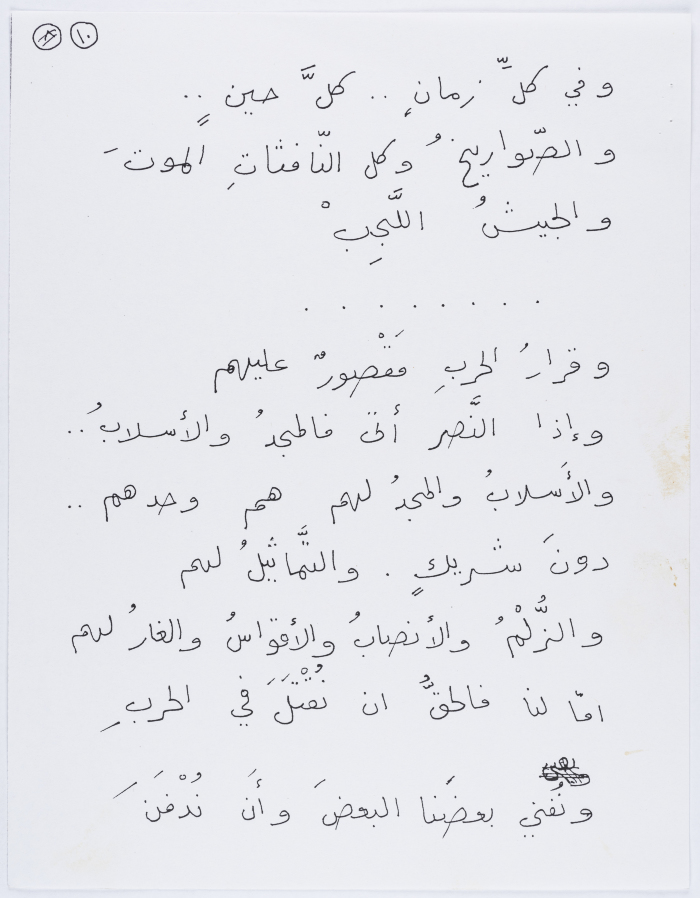 ١٠
وفي كلِّ زمانٍ .. كلَّ حينٍ ..
والصّواريخُ وكل النّافثاتِ الموتَ
والجيشُ اللَّجِبْ
. . . . . . . .
وقرارُ الحربِ مَقْصورٌ عليهم
وإذا النَّصر أتى فالمجدُ والأسلابُ ..
والأَسلابُ والمجدُ لهم هم وحدهم ..
دونَ شريكٍ . والتَّماثيلُ لهم
والزُّلْمُ والأنصابُ والأقواسُ والغارُ لهم
امّا لنا فالحقُّ ان نُقْتَلَ في الحربِ
ونُفني بعضَنا البعضَ وأَن نُدْفَنَ